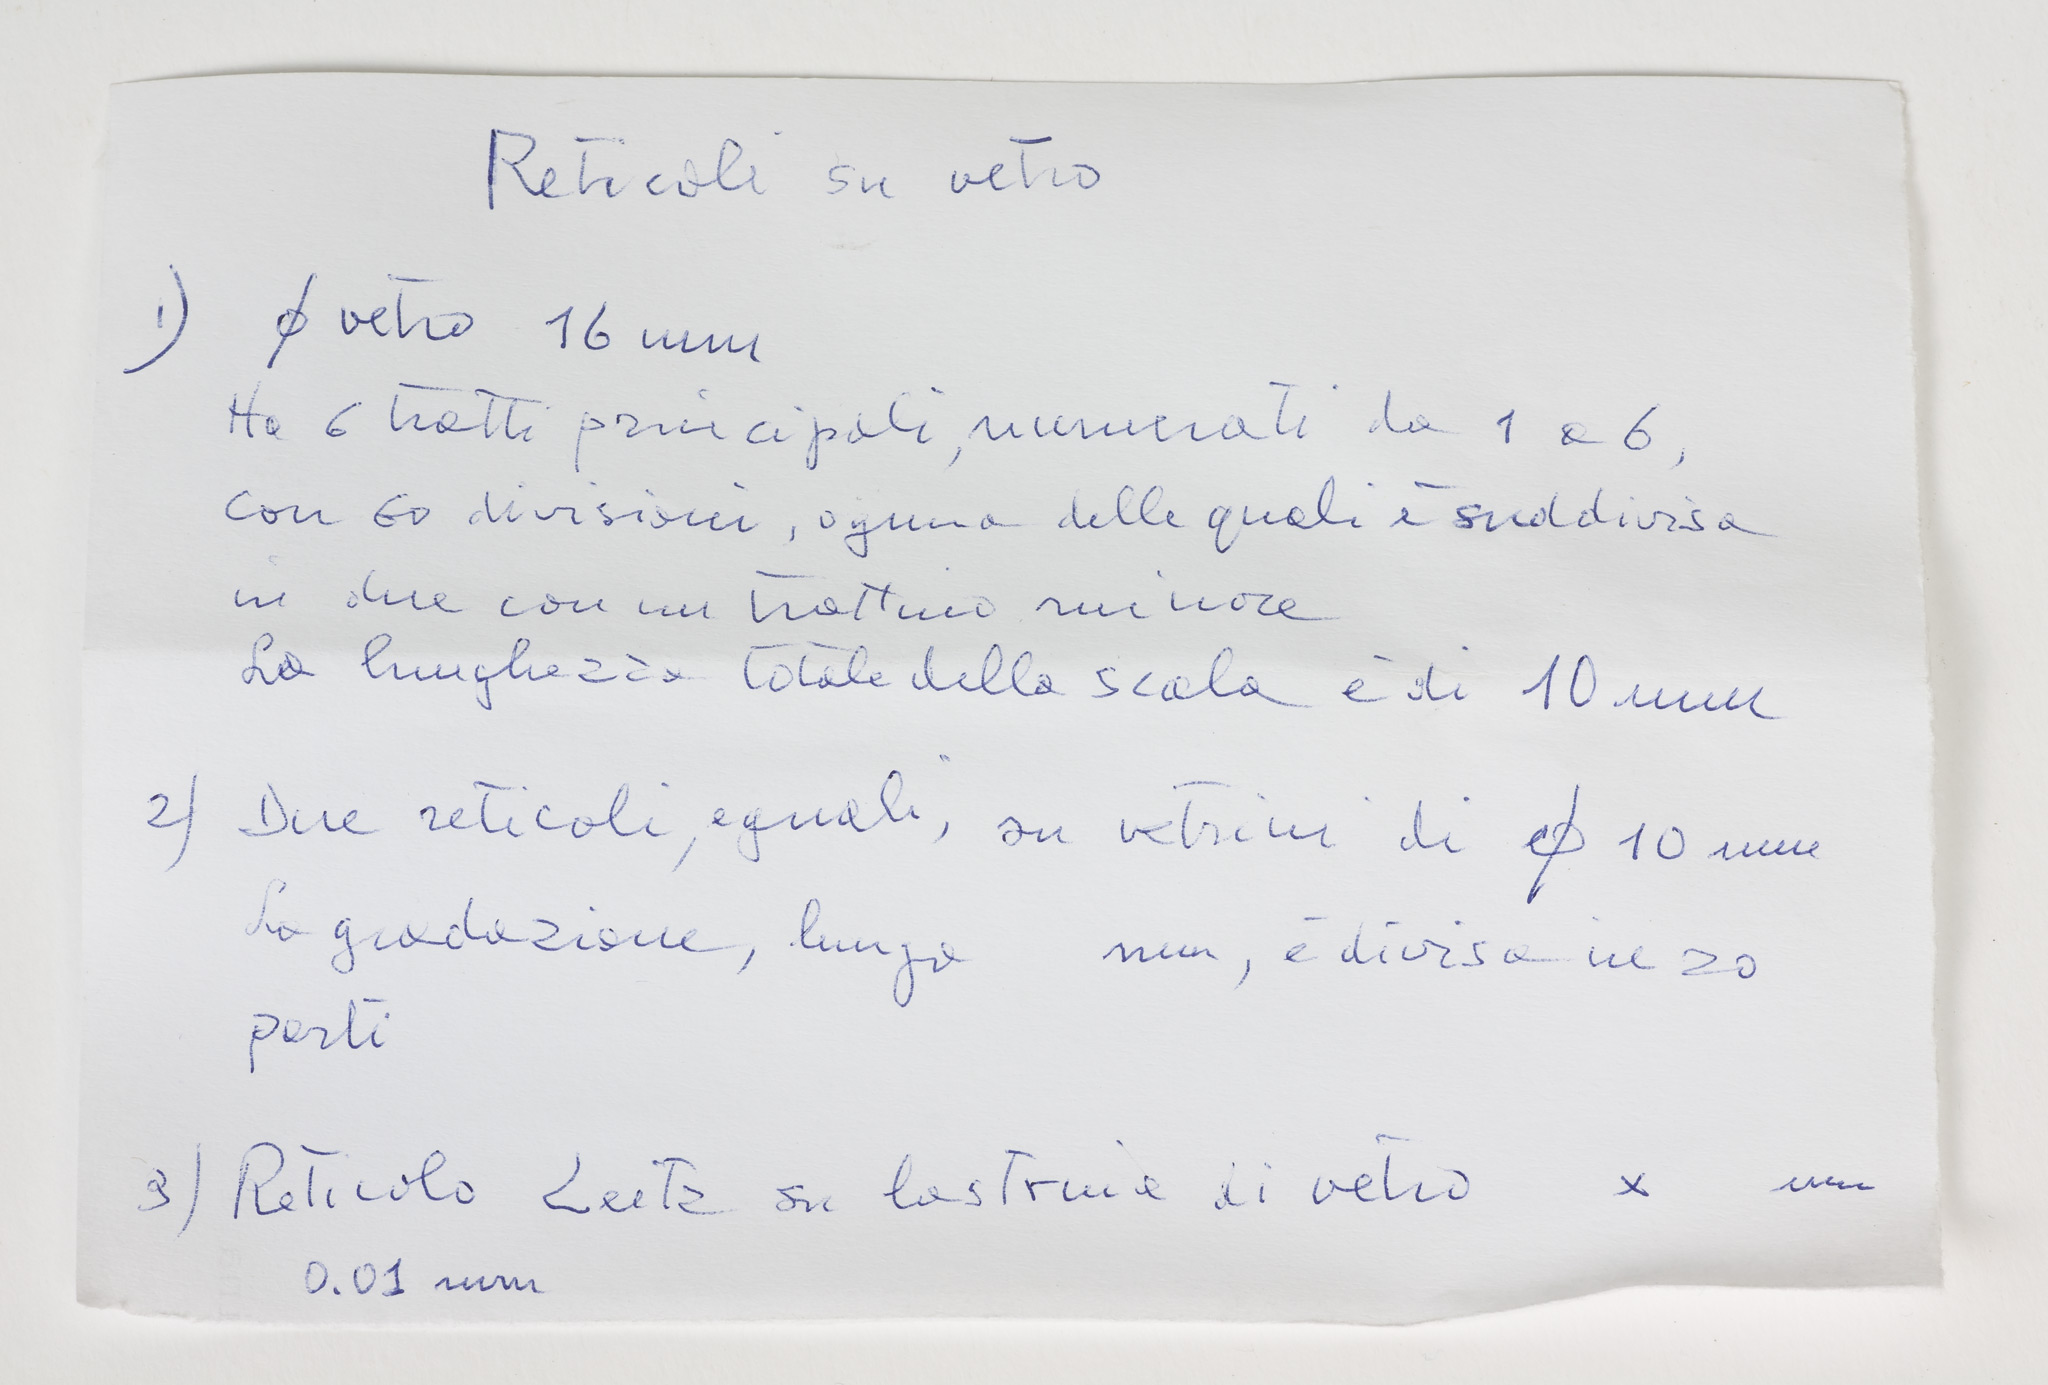 Reticoli su vetro
1) ϕ vetro 16 mm
Ha 6 tratti principali, numerati da 1 a 6,
con 60 divisioni, ognuna delle quali è suddivisa
in due con un trattino minore
La lunghezza totale della scala è di 10 mm
2) Due reticoli, eguali, su vetrini di ϕ 10 mm
La gradazione, lunga mm, è divisa in 20
parti
3) Reticolo Leitz su lastrina di vetro x mm
0.01 mm